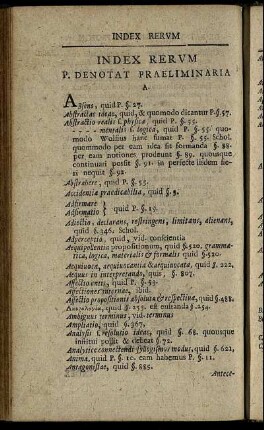 INDEX RERVM
INDEX RERVM
P. DENOTAT PRAELIMINARIA
A.
Absens, quid P. §. 27.
Abstractae ideae, quid, & quomodo dicantur P. §. 57.
Abstractio realis s. physica quid P. §. 55.
- - - - mentalis s. logica, quid P. §. 55. quo-
modo Wolfius hanc sumat P. §. 55. Schol.
quommodo per eam idea sit formanda §. 88.
per eam notiones prodeunt §. 89. quousque
continuari possit §. 91. in perfecte iisdem fie-
ri nequit §. 92.
Abstrahere, quid P. §. 55.
Accidentia praedicabilia, quid §. 9.
Adfirmare
Adfirmatio } quid P. §. 19.
Adiectio, declarans, restringens, limitans, alienans,
quid §. 346. Schol.
Adperceptio, quid, vid. conscientia
Aequipollentia propositionum, quid §. 520. gramma-
tica, logica, materialis & formalis quid §. 520.
Aequivoca, aequivocantia & aequivocata, quid §. 222.
Aequus in interpretando, quis §. 807.
Affectio entis, quid P. §. 53.
Affectiones internae, ibid.
Affectio propositionis absoluta & respectiua, quid §. 488.
quid §. 253. est eufranda §. 254.
Ambiguus terminus, vid. terminus
Ampliatio, quid §. 367.
Analysis s. resolutio ideae, quid §. 68. quousque
institui possit & debeat §. 72.
Analytice connectendi syllogismos modus, quid §. 621,
Anima. quid P. §. 10. eam habemus P. §. 11.
Antagonistae, quid §. 885.
Antece-